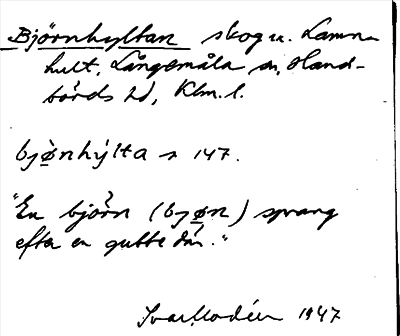 Björnhyltan skog u. Lamm-
hult, Långemåla sn, Hand-
börds hd, Klm. l.
bjø̀nhỳlta s 147.
"En björn (bjø̀n) sprang
efter en gubbe där."
1947